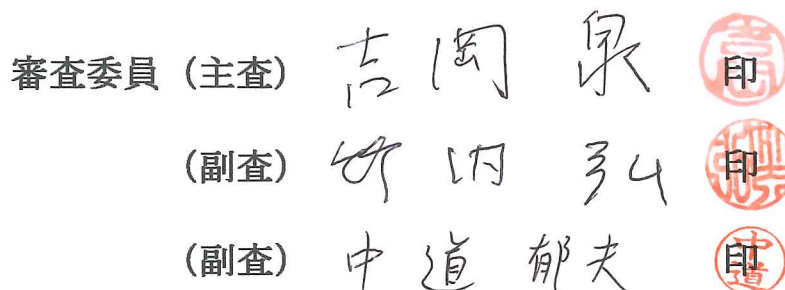 審査委員（主査） 吉岡 泉 印
（副査） 竹内 弘 印
（副査） 中道 郁夫 印